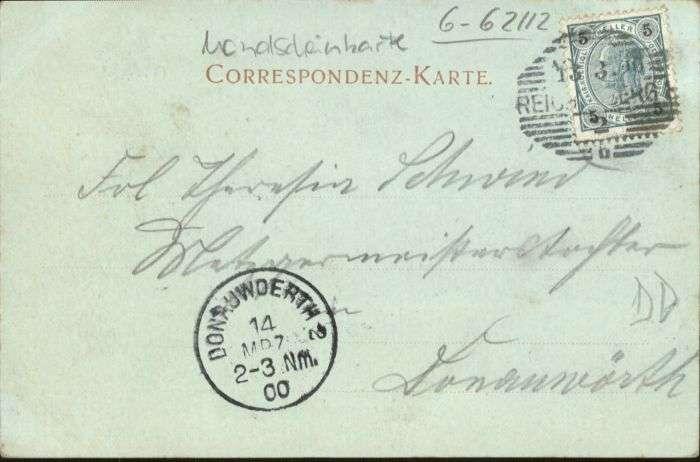 Mondscheinkarte
6-62112
CORRESPONDENZ-KARTE.
5 5
5 5
13 3
REIC
b
Frl Theresia Schwend
Metzgermeisterstochter
in
Donauwörth
DD
DONAUWOERTH 2
14
MRZ
2-3 Nm.
00